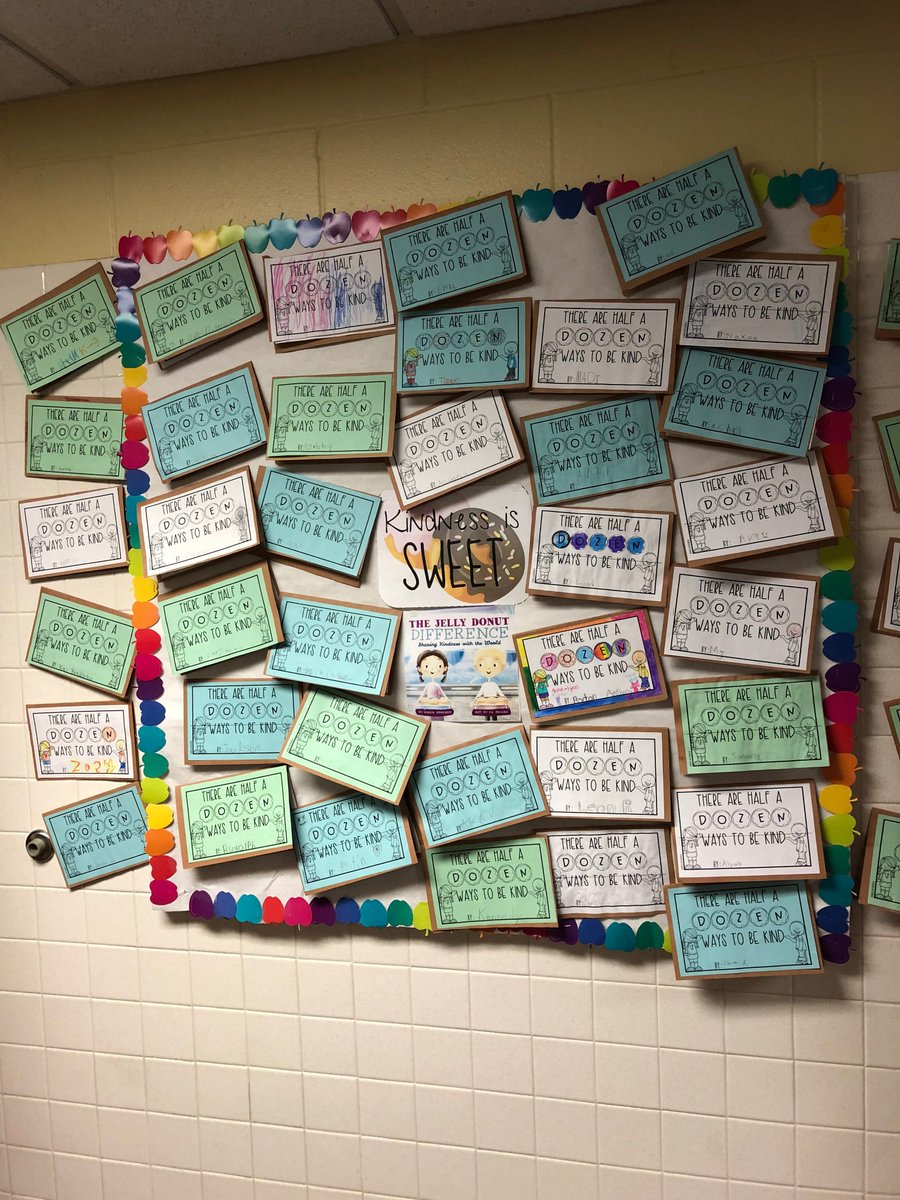 THERE ARE HALF A
DOZEN
WAYS TO BE KIND
BY:
THERE ARE HALF A
DOZEN
WAYS TO BE KIND
BY:
THERE ARE HALF A
DOZEN
WAYS TO BE KIND
THERE ARE HALF A
DOZEN
WAYS TO BE KIND
BY:
THERE ARE HALF A
DOZEN
WAYS TO BE KIND
BY:
THERE ARE HALF A
DOZEN
WAYS TO BE KIND
BY:
THERE ARE HALF A
DOZEN
WAYS TO BE KIND
BY:
THERE ARE HALF A
DOZEN
WAYS TO BE KIND
BY: MADI
THERE ARE HALF A
DOZEN
WAYS TO BE KIND
BY:
THERE ARE HALF A
DOZEN
WAYS TO BE KIND
BY:
THERE ARE HALF A
DOZEN
WAYS TO BE KIND
BY:
THERE ARE HALF A
DOZEN
WAYS TO BE KIND
BY:
THERE ARE HALF A
DOZEN
WAYS TO BE KIND
BY:
THERE ARE HALF A
DOZEN
WAYS TO BE KIND
BY:
THERE ARE HALF A
DOZEN
WAYS TO BE KIND
BY:
THERE ARE HALF A
DOZEN
WAYS TO BE KIND
BY:
THERE ARE HALF A
DOZEN
WAYS TO BE KIND
BY:
THERE ARE HALF A
DOZEN
WAYS TO BE KIND
BY:
Kindness is
SWEET
THERE ARE HALF A
DOZEN
WAYS TO BE KIND
BY:
THERE ARE HALF A
DOZEN
WAYS TO BE KIND
BY: Ava
THERE ARE HALF A
DOZEN
WAYS TO BE KIND
BY:
THERE ARE HALF A
DOZEN
WAYS TO BE KIND
BY:
THERE ARE HALF A
DOZEN
WAYS TO BE KIND
BY:
THE JELLY DONUT
DIFFERENCE
Sharing Kindness with the World
THERE ARE HALF A
DOZEN
WAYS TO BE KIND
Paxton
THERE ARE HALF A
DOZEN
WAYS TO BE KIND
BY: MJ
THERE ARE HALF A
DOZEN
WAYS TO BE KIND
THERE ARE HALF A
DOZEN
WAYS TO BE KIND
BY: Jackson
THERE ARE HALF A
DOZEN
WAYS TO BE KIND
BY:
THERE ARE HALF A
DOZEN
WAYS TO BE KIND
BY:
THERE ARE HALF A
DOZEN
WAYS TO BE KIND
BY:
THERE ARE HALF A
DOZEN
WAYS TO BE KIND
BY:
THERE ARE HALF A
DOZEN
WAYS TO BE KIND
BY:
THERE ARE HALF A
DOZEN
WAYS TO BE KIND
BY: Rudolph
THERE ARE HALF A
DOZEN
WAYS TO BE KIND
BY:
THERE ARE HALF A
DOZEN
WAYS TO BE KIND
BY: Kennedy
THERE ARE HALF A
DOZEN
WAYS TO BE KIND
BY:
THERE ARE HALF A
DOZEN
WAYS TO BE KIND
BY:
THERE ARE HALF A
DOZEN
WAYS TO BE KIND
BY: